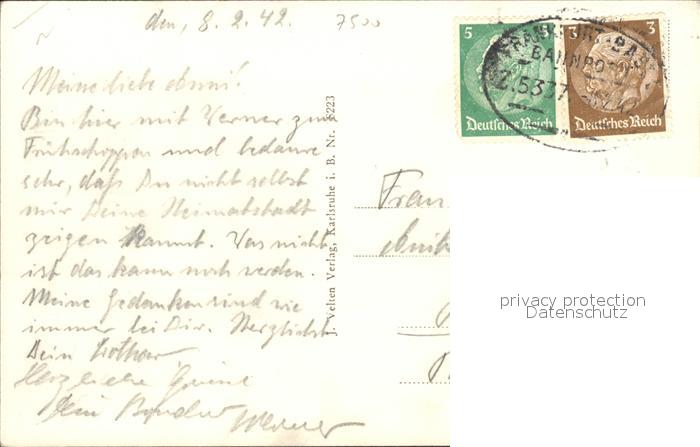 den, 8.2.42.
7500
Meine liebe
Bin hier mit Werner zum
Frühschoppen und bedaure
sehr, daß Du nicht selbst
mir Deine Heimatstadt
zeigen kannst. Was nicht
ist das kann noch werden.
Meine Gedanken sind wie
immer bei Dir. Herzlichst
Dein Lothar
Herzliche Grüße
Dein Bruder Werner
J. Velten Verlag, Karlsruhe i. B. Nr. 6223
5
Deutsches Reich
3 3
Deutsches Reich
FRANKFURT-BAS
BAHNPOST
Z.5337
Frau
privacy protection
Datenschutz